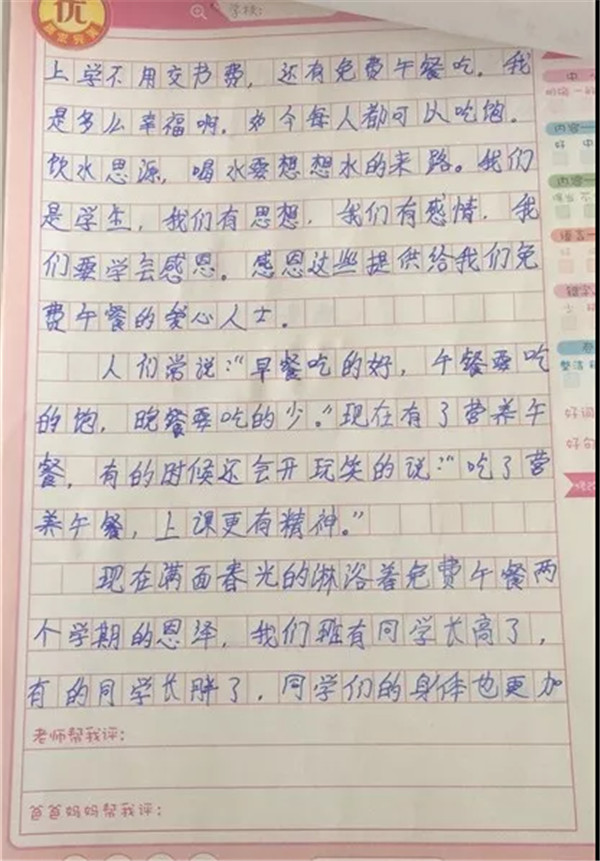 优
学校:
上学不用交书费，还有免费午餐吃。我
是多么幸福啊。如今每人都可以吃饱。
饮水思源，喝水要想想水的来路。我们
是学生，我们有思想，我们有感情，我
们要学会感恩。感恩这些提供给我们免
费午餐的爱心人士。
人们常说：“早餐吃的好，午餐要吃
的饱，晚餐要吃的少。”现在有了营养午
餐，有的时候还会开玩笑的说：“吃了营
养午餐，上课更有精神。”
现在满面春光的淋浴着免费午餐两
个学期的恩泽，我们班有同学长高了，
有的同学长胖了，同学们的身体也更加
老师帮我评:
爸爸妈妈帮我评:
中
内容一
好 中
内容一
语言一
好词
好句